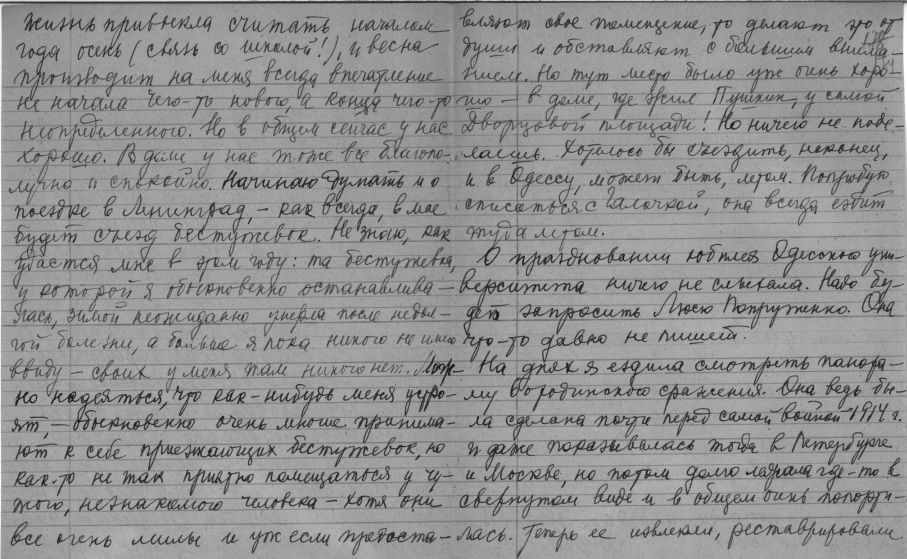 жизнь привыкла считать началом
года осень (связь со школой!), и весна
производит на меня всегда впечатление
не начала чего-то нового, а конца чего-то
неопределенного. Но в общем сейчас у нас
хорошо. В доме у нас тоже все благопо-
лучно и спокойно. Начинаю думать и о
поездке в Ленинград, – как всегда, в мае
будет съезд бестужевок. Не знаю, как
удастся мне в этом году: та бестужевка,
у которой я обыкновенно останавлива-
лась, зимой неожиданно умерла после недол-
гой болезни, а больше я пока никого не имею
ввиду – своих у меня там никого нет. Мож-
но надеяться, что как-нибудь меня устро-
ят, – обыкновенно очень многие принима-
ют к себе приезжающих бестужевок, но
как-то не так приятно помещаться у чу-
жого, незнакомого человека – хотя они
все очень милы и уж если предоста-
вляют свое помещение, то делают это от
души и обставляют с большим внима-
нием. Но тут место было уж очень хоро-
шо – в доме, где жил Пушкин, у самой
Дворцовой площади! Но ничего не поде-
лаешь. Хотелось бы съездить, наконец,
и в Одессу, может быть, летом. Попробую
списаться с Галочкой, она всегда ездит
туда летом.
О праздновании юбилея Одесского уни-
верситета ничего не слыхала. Надо бу-
дет запросить Люсю Попруженко. Она
что-то давно не пишет.
На днях я ездила смотреть панора-
му Бородинского сражения. Она ведь бы-
ла сделана почти перед самой войной 1914 г.
и даже показывалась тогда в Петербурге
и Москве, но потом долго лежала где-то в
свернутом виде и в общем очень попорти-
лась. Теперь ее извлекли, реставрировали